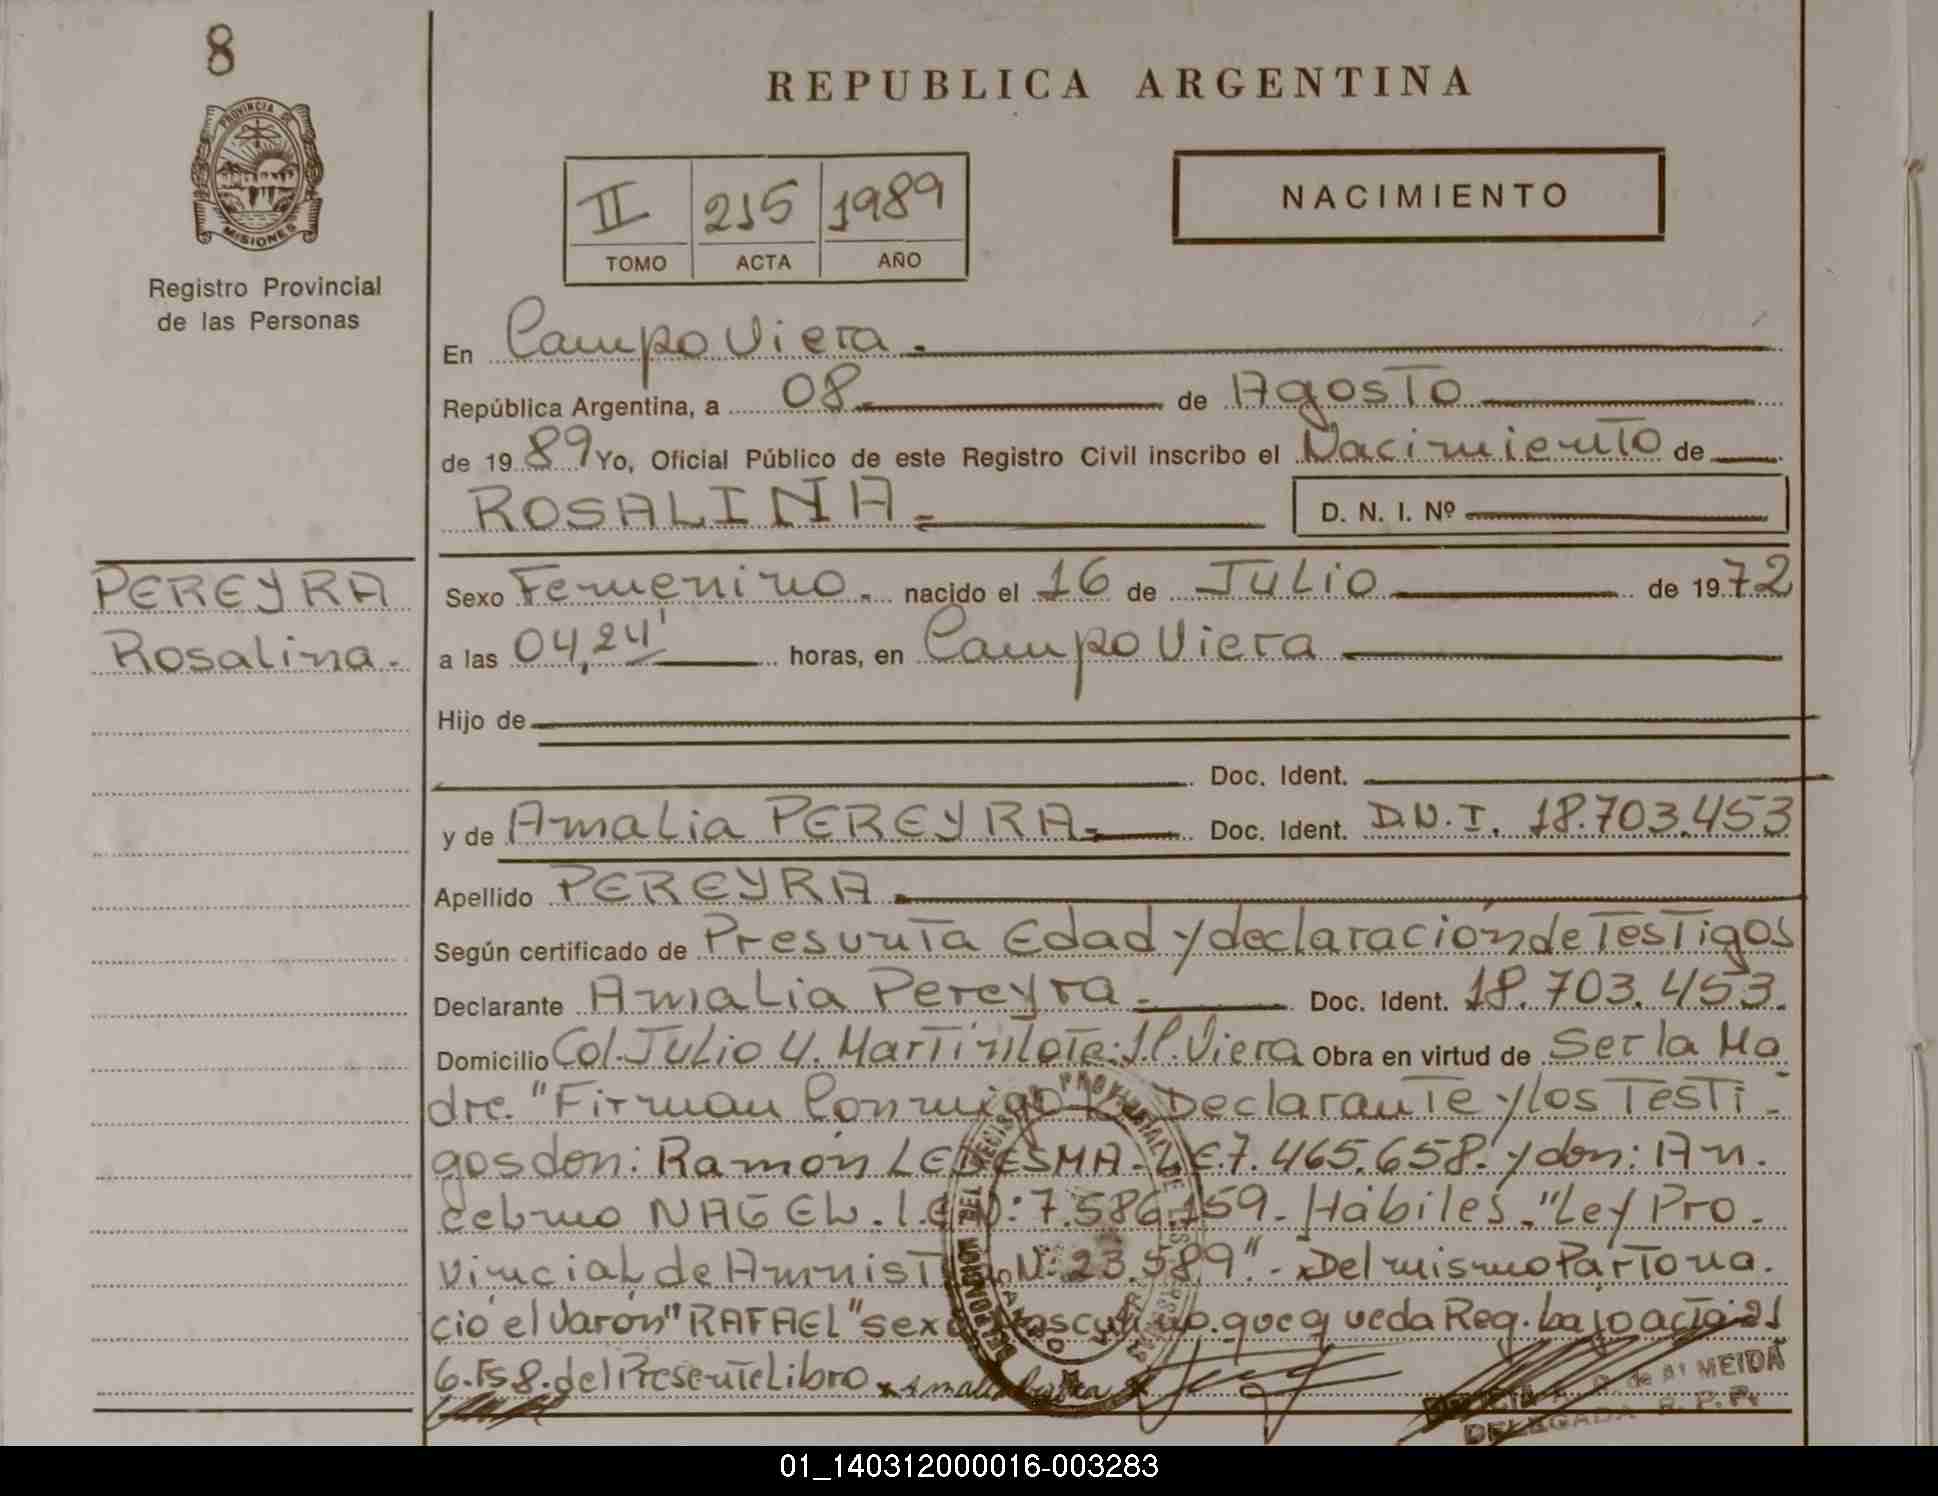 8
PROVINCIA DE
MISIONES
Registro Provincial
de las Personas
PEREYRA
Rosalina.
REPUBLICA ARGENTINA
II 215 1989
TOMO ACTA AÑO
NACIMIENTO
En Campo Viera.
República Argentina, a 08 de Agosto
de 1989 Yo, Oficial Público de este Registro Civil inscribo el Nacimiento de
ROSALINA.
D. N. I. Nº
Sexo Femenino. nacido el 16 de Julio de 1972
a las 04,24' horas, en Campo Viera
Hijo de
Doc. Ident.
y de Amalia PEREYRA. Doc. Ident. D.N.I. 18.703.453
Apellido PEREYRA
Según certificado de Presunta Edad y declaración de Testigos
Declarante Amalia Pereyra. Doc. Ident. 18.703.453.
Domicilio Col. Julio U. Martin Lote: Viera Obra en virtud de Ser la Ma
dre. "Firman Conmigo Declarante y los Testi-
gos don: Ramón LEDESMA - L.E. 7.465.658. y don: An.
celmo NAGEL. 7.586.159. Hábiles. "Ley Pro-
vincial de Amnistía Nº 23.589". - Del mismo Parto na.
ció el Varón "RAFAEL" sexo Masculino. que queda Reg. bajo acta: 21
6. Fs 8. del Presente Libro.
AL MEIDA
DELEGADA R. P. P.
01_140312000016-003283